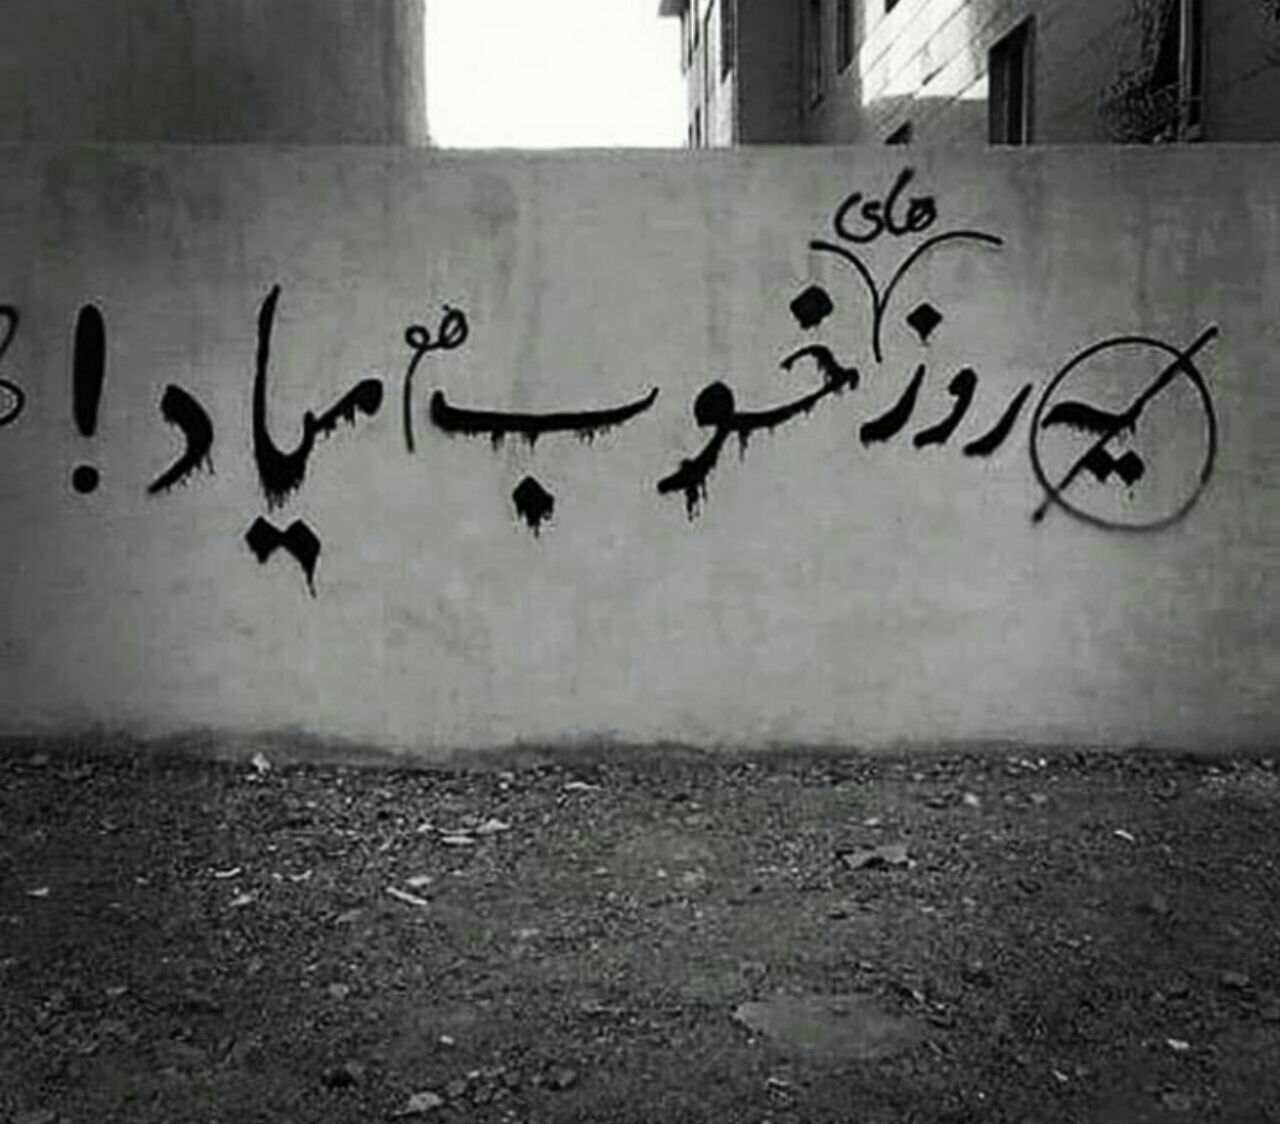 های
یه روز خوب هم میاد!